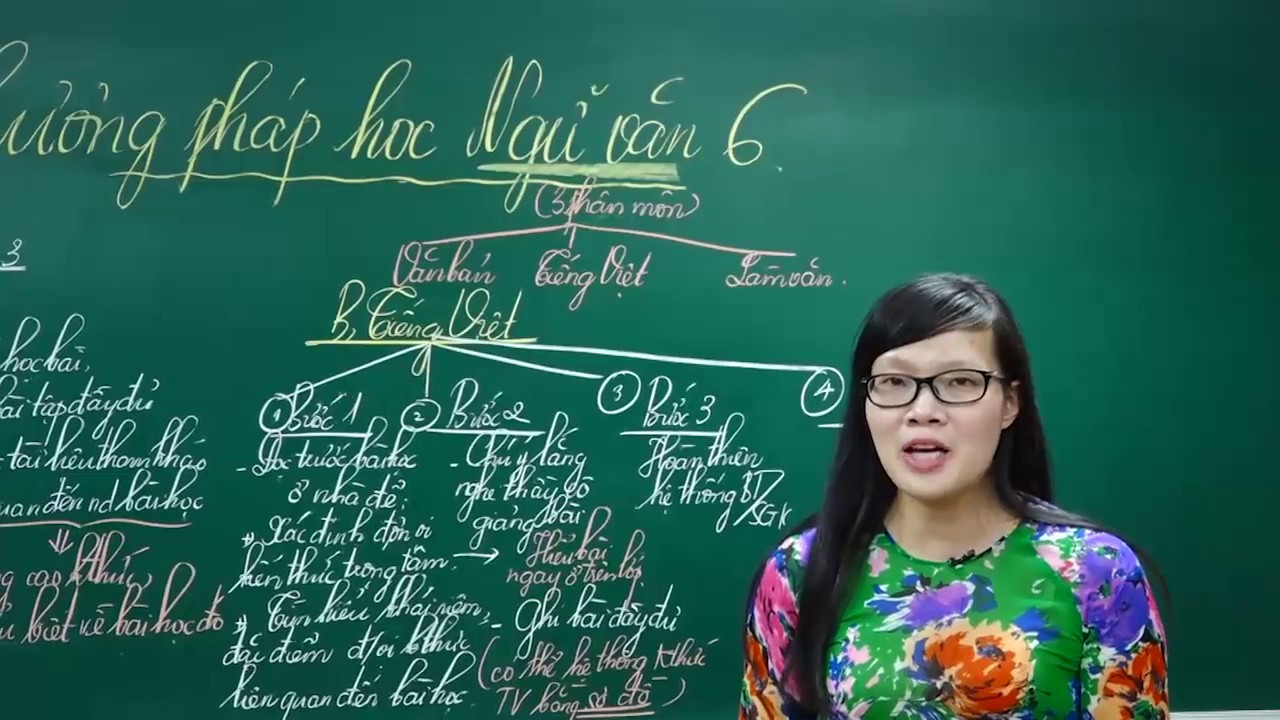 hương pháp học Ngữ văn 6
(3 phân môn)
Văn bản Tiếng Việt Làm văn.
3
B, Tiếng Việt
học bài,
bài tập đầy đủ
tài liệu tham khảo
quan đến nd bài học
cao kthức,
biết về bài học đó
① Bước 1
- Đọc trước bài học
ở nhà để:
Xác định đơn vị
kiến thức trọng tâm.
Tìm hiểu khái niệm,
đặc điểm đ/vị kthức
liên quan đến bài học
② Bước 2
- Chú ý lắng
nghe thầy cô
giảng bài
→ Hiểu bài
ngay ở trên lớp
- Ghi bài đầy đủ
(có thể hệ thống kthức
TV bằng sơ đồ)
③ Bước 3
Hoàn thiện
hệ thống BT/SGK
④